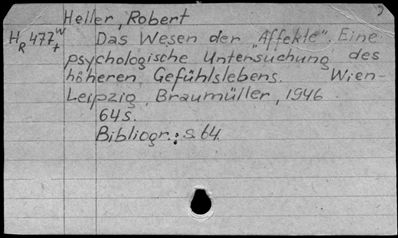 Heller, Robert
HR 477w+ Das Wesen der "Affekte". Eine
psychologische Untersuchung des
höheren Gefühlslebens. Wien-
Leipzig, Braumüller, 1946
64s.
Bibliogr.: s 64.